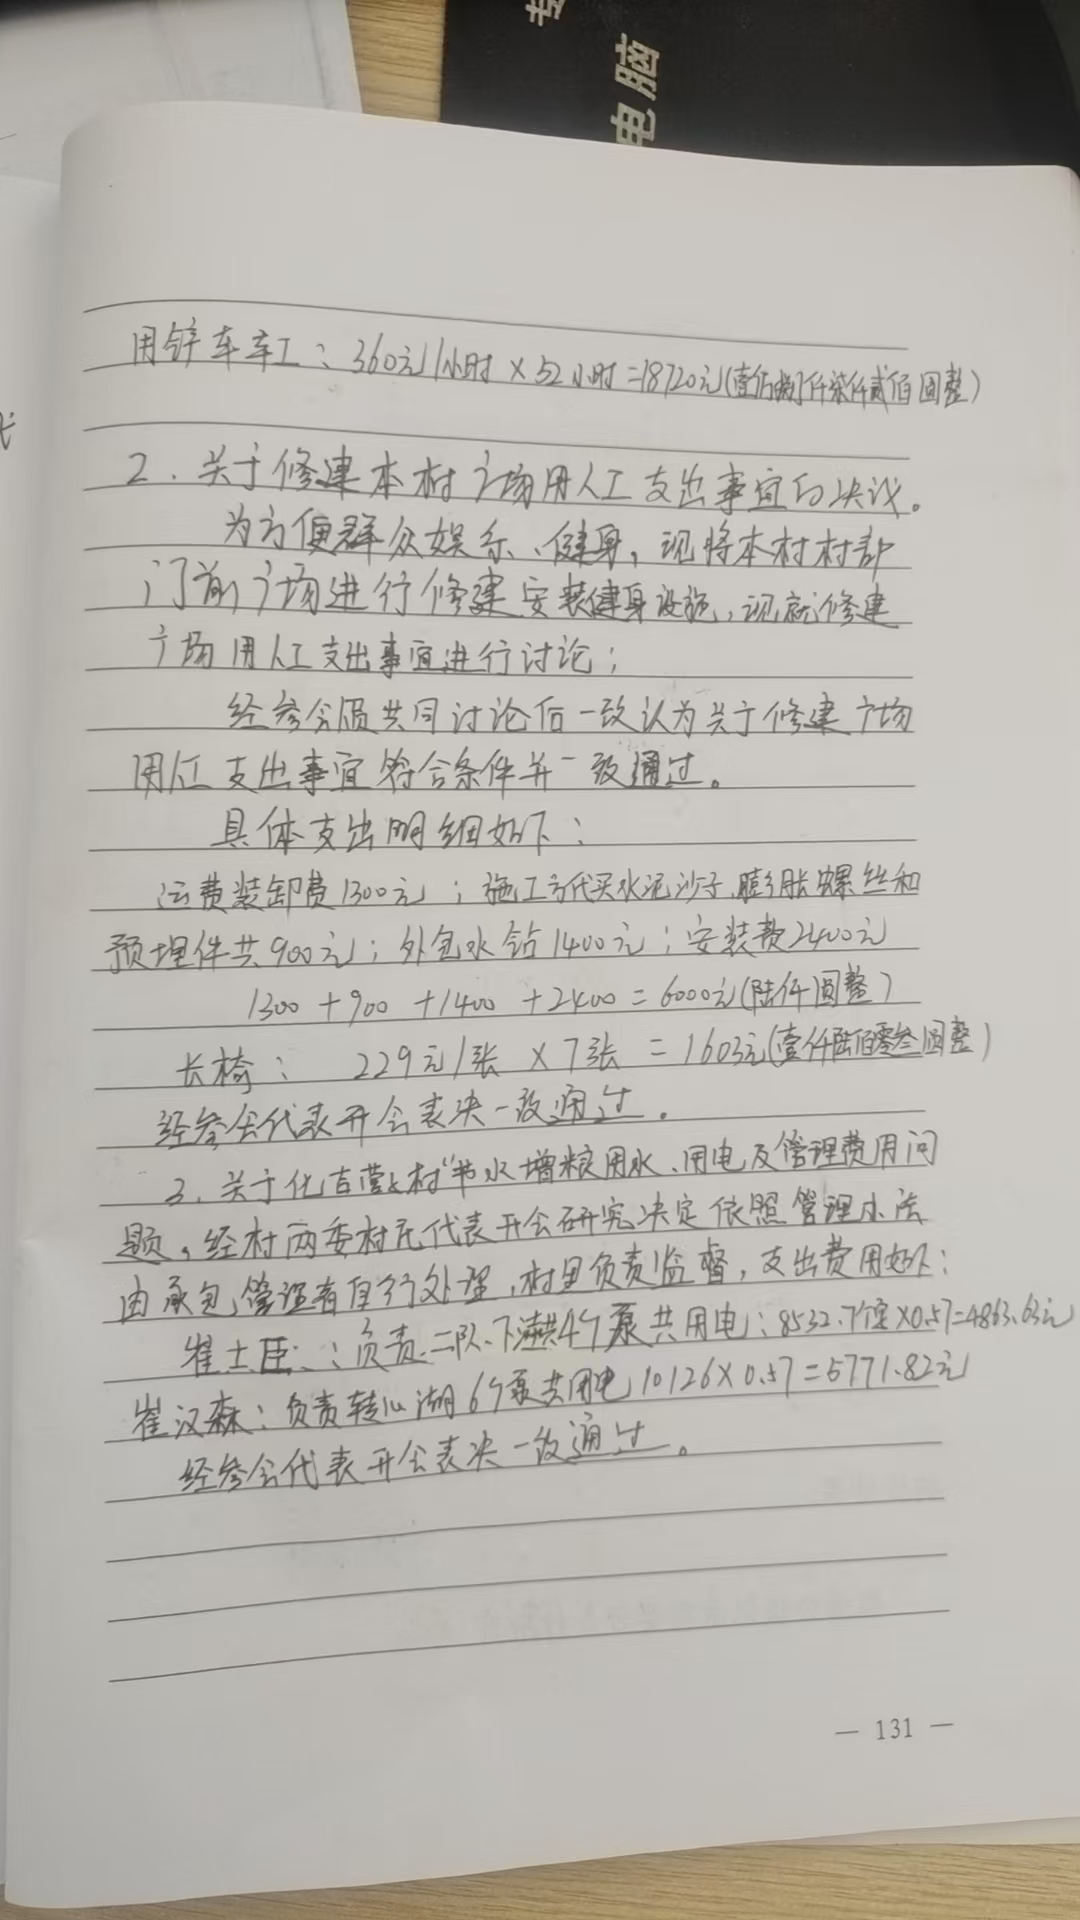 专
电脑
用铲车车工：360元/1小时×52小时=18720元(壹佰捌仟柒仟贰佰圆整)
2.关于修建本村广场用人工支出事宜的决议。
为方便群众娱乐、健身，现将本村村部
门前广场进行修建安装健身设施，现就修建
广场用人工支出事宜进行讨论；
经参会人员共同讨论后一致认为关于修建广场
用人工支出事宜符合条件并一致通过。
具体支出明细如下：
运费装卸费1300元；施工方代买水泥沙子、膨胀螺丝和
预埋件共900元；外包水钻1400元；安装费2400元
1300+900+1400+2400=6000元(陆仟圆整)
长椅：229元/张×7张=1603元(壹仟陆佰零叁圆整)
经参会代表开会表决一致通过。
3.关于化吉营村"节水增粮用水、用电及管理费用问
题。经村两委村民代表开会研究决定依照管理办法
由承包、管理者自行处理，村里负责监督，支出费用如下：
崔士臣：负责二队、下 共4个泵共用电：8532.7 ×0.57=4863.63元
崔汉森：负责转山湖6个泵共用电10126×0.57=5771.82元
经参会代表开会表决一致通过。
— 131 —